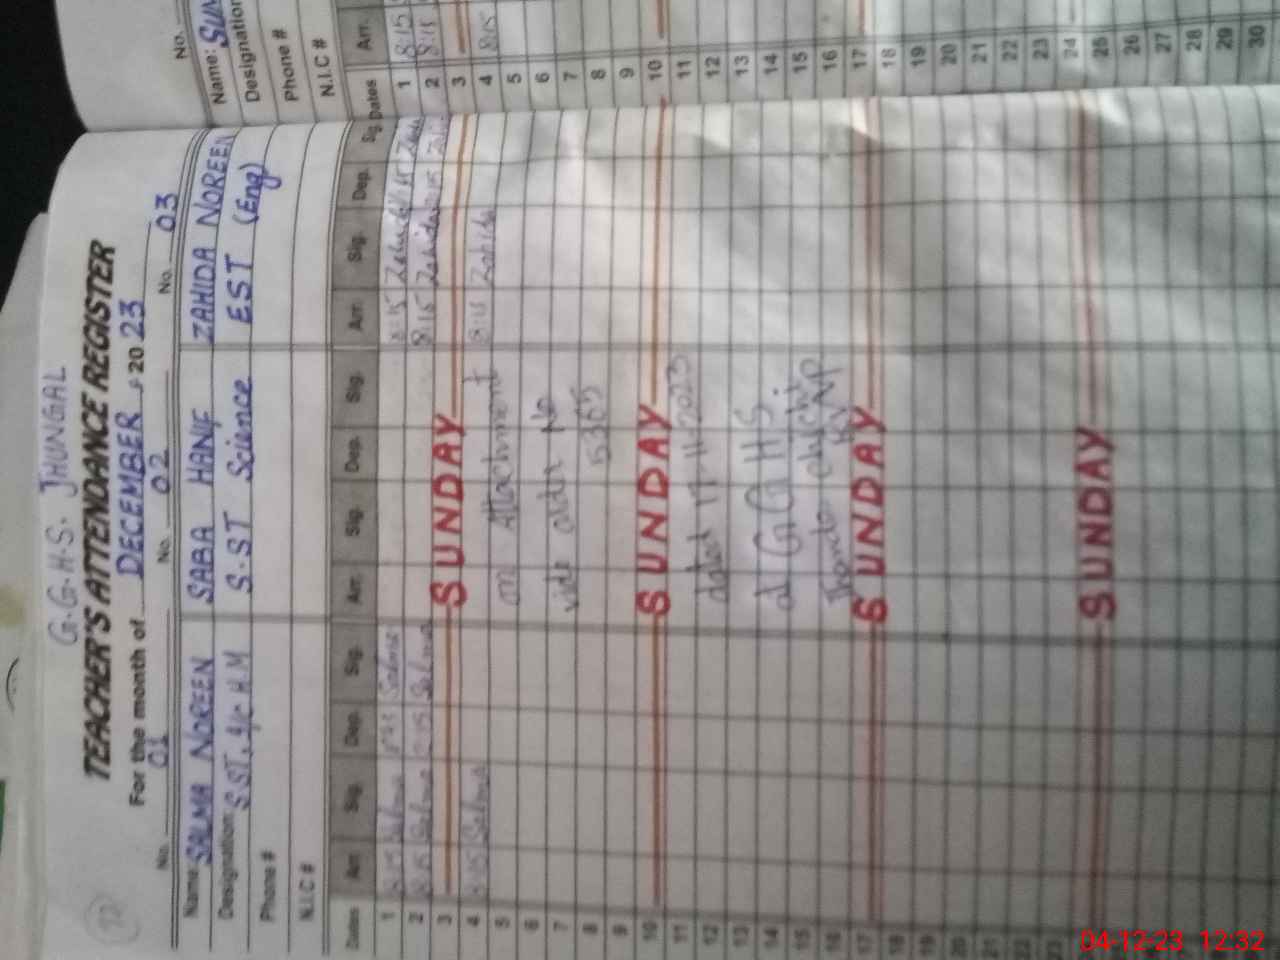 G.G.H.S. JHUNGAL
TEACHER'S ATTENDANCE REGISTER
For the month of DECEMBER, 2023
No. 01 No. 02 No. 03
Name: SALMA NOREEN SABA HANIF ZAHIDA NOREEN
Designation: S.ST, I/C H.M S.ST Science EST (Eng)
Phone #
N.I.C #
Dates Arr. Sig. Dep. Sig. Arr. Sig. Dep. Sig. Arr. Sig. Dep. Sig.
1 8:15 Salma Salma 8:15 Zahida
2 8:15 Salma 2:15 Salma 8:15 Zahida 2:15
3 SUNDAY
4 8:15 Salma 8:15 Zahida
5 on Attachment
6
7 vide order No
8 5365
9
10 SUNDAY
11
12 dated 17-11-2023
13
14 at G G H S
15
16 Thanda chichi
RWP
17 SUNDAY
18
19
20
21
22
23
SUNDAY
No.
Name: SUM
Designation
Phone #
N.I.C #
Dates Arr.
1 8:15
2 8:15
3
4 8:15
5
6
7
8
9
10
11
12
13
14
15
16
17
18
19
20
21
22
23
24
25
26
27
28
29
30
04-12-23 12:32